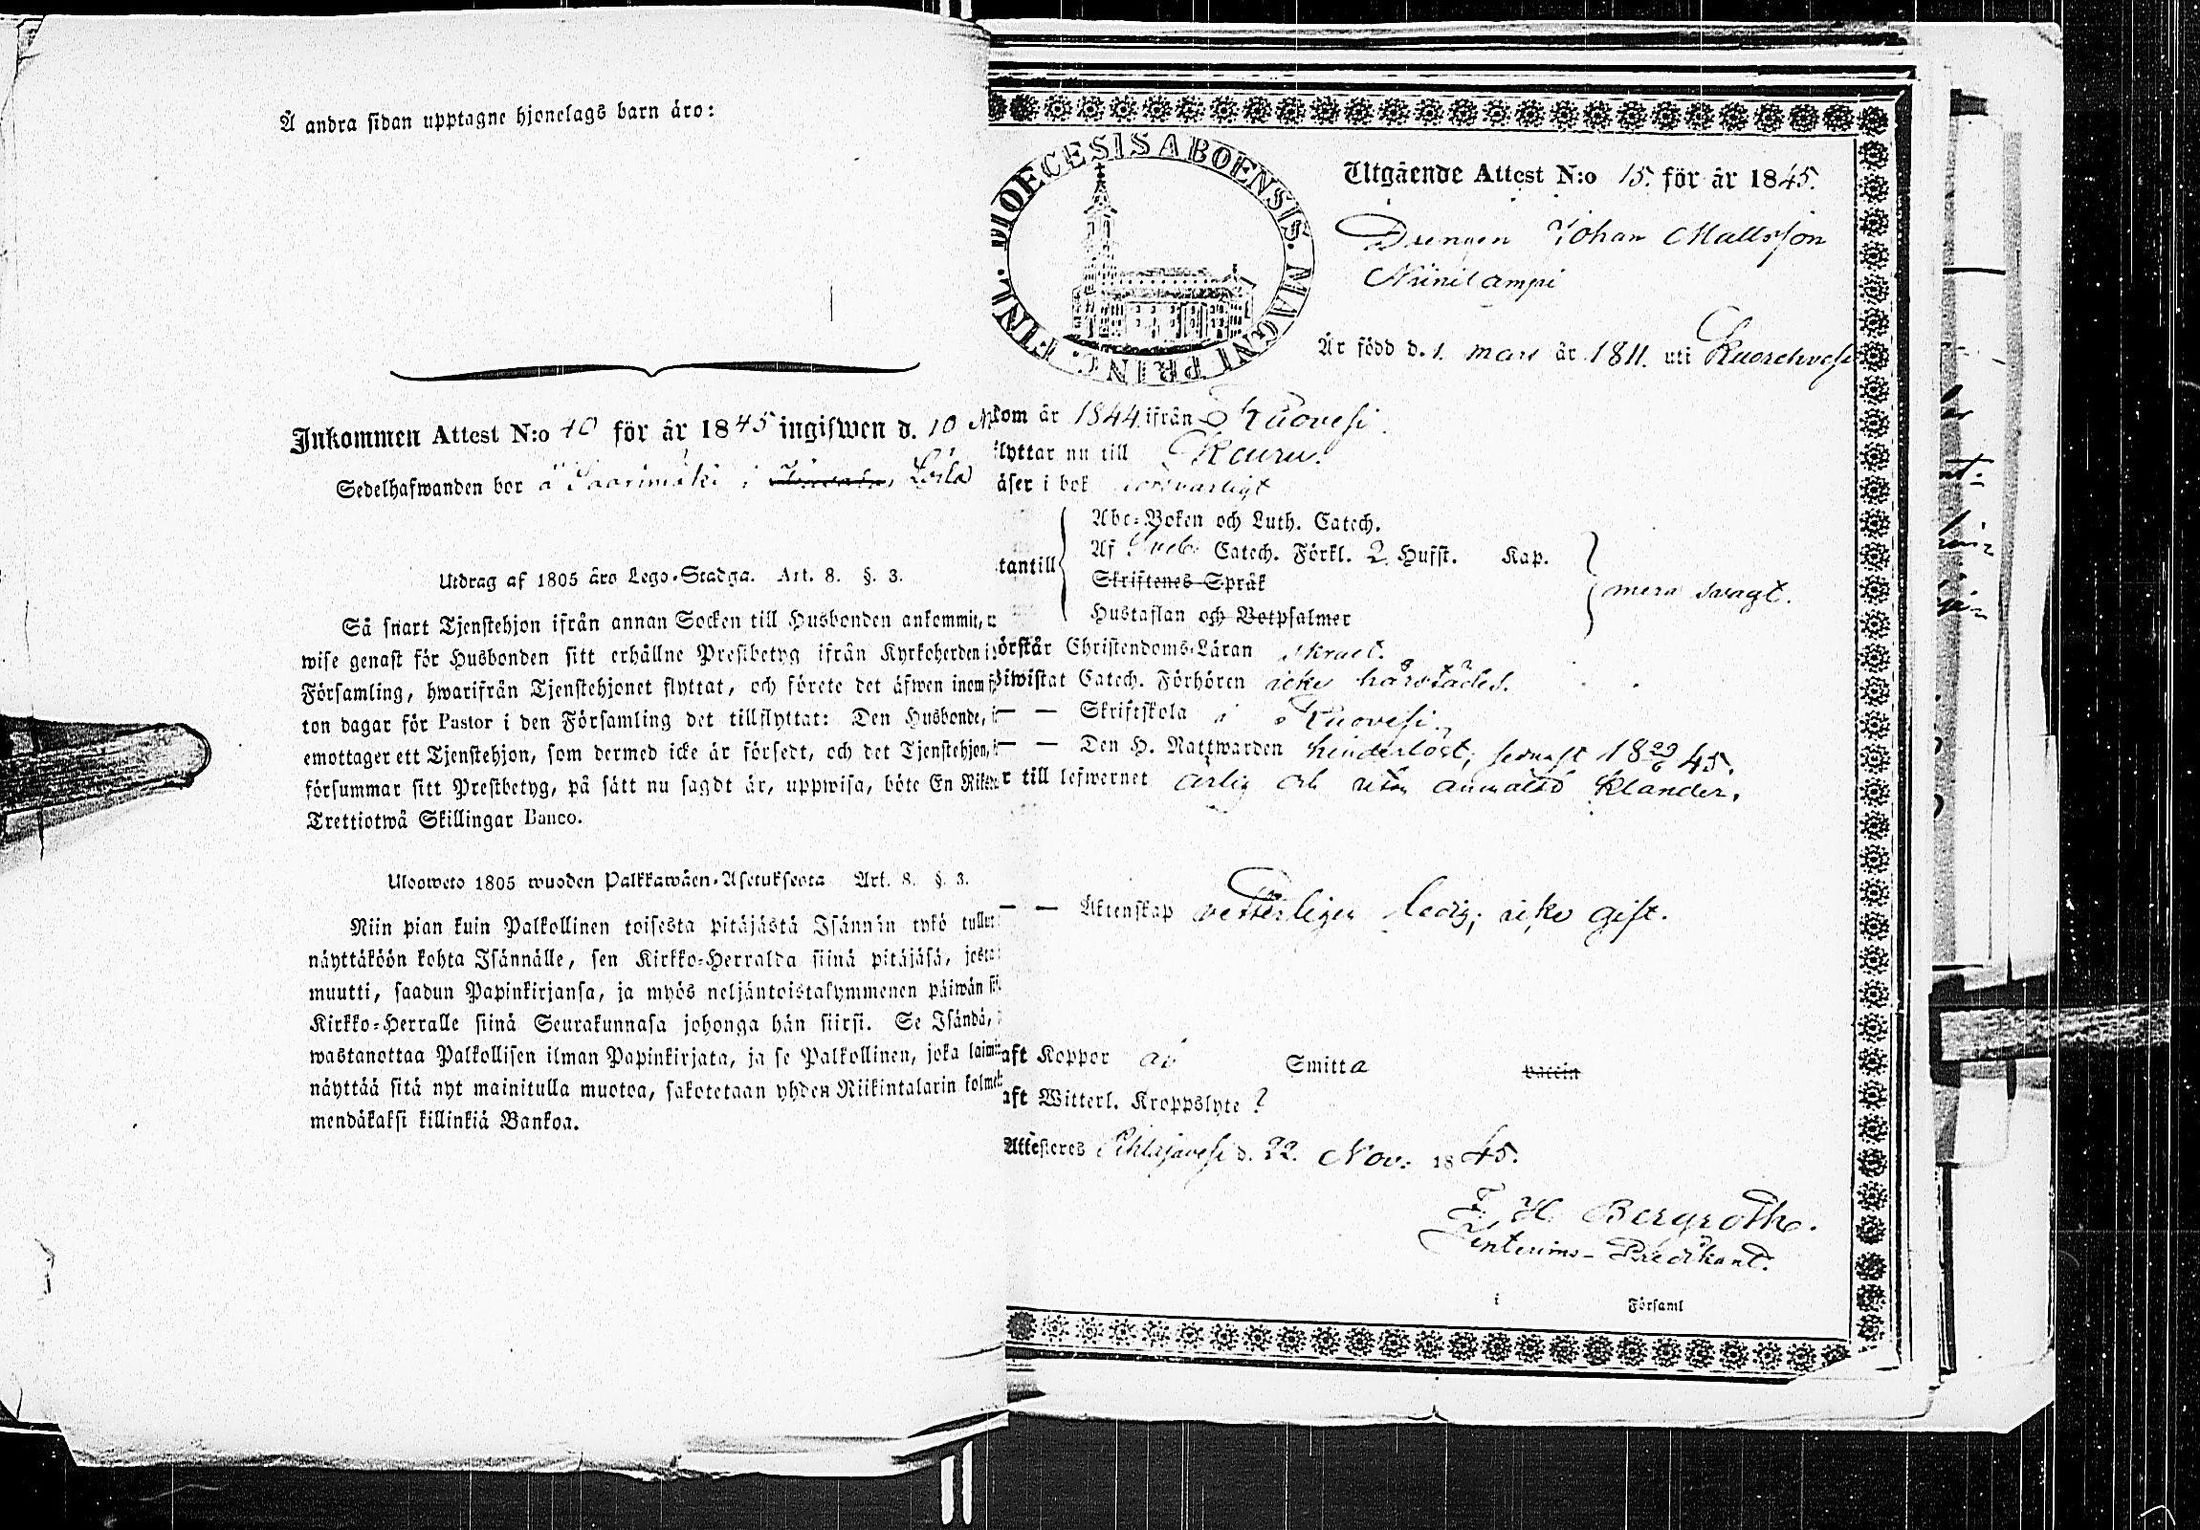 Å andra sidan upptagne hjonelags barn äro:
Inkommen Attest N:o 10 för år 1845 ingifwen d. 10
Sedelhafwanden bor å Saarimäki i
Utdrag af 1805 års Lego-Stadga. Art. 8. §. 3.
Så snart Tjenstehjon ifrån annan Socken till Husbonden ankommit,
wise genast för Husbonden sitt erhållne Prestbetyg ifrån Kyrkoherden i
Församling, hwarifrån Tjenstehjonet flyttat, och förete det äfwen inom
ton dagar för Pastor i den Församling det tillflyttat: Den Husbonde,
emottager ett Tjenstehjon, som dermed icke är försedt, och det Tjenstehjon,
försummar sitt Prestbetyg, på sätt nu sagdt är, uppwisa, böte En
Trettiotwå Skillingar Banco.
Ulosweto 1805 wuoden Palkkawäen-Asetuksesta Art. 8. §. 3.
Niin pian kuin Palkollinen toisesta pitäjästä Isännän tykö tullut
näyttäköön kohta Isännälle, sen Kirkko-Herralda siinä pitäjäsä, josta
muutti, saadun Papinkirjansa, ja myös neljäntoistakymmenen päiwän
Kirkko-Herralle siinä Seurakunnasa johonga hän siirsi. Se Isändä,
wastanottaa Palkollisen ilman Papinkirjata, ja se Palkollinen, joka
näyttää sitä nyt mainitulla muotoa, sakotetaan yhden Riikintalarin
mendäkaksi killinkiä Bankoa.
DIOECESIS ABOENSIS. MAGNI PRINC. FINL.
Utgående Attest N:o 15. för år 1845.
Drengen Johan Mattsson
Niinilampi
Är född d. 1. mars år 1811. uti Kuorehvesi
kom år 1844 ifrån Ruovesi.
flyttar nu till Kuru.
äser i bok försvarligt
tantill
Abc-Boken och Luth. Catech.
Af Sveb. Catech. Förkl. 2 Hufst. Kap.
Skriftenes Språk
Hustaflan och Botpsalmer
mera svagt.
örstår Christendoms-Läran svagt.
Biwistat Catech. Förhören icke härstädes.
— — Skriftskola i Ruovesi.
— — Den H. Nattwarden hinderlöst; senast 18 29/6 45.
r till lefwernet ärlig och utan anmäld klander.
— — Äktenskap vetterligen ledig; icke gift.
aft Koppor ai Smitta vaccin
aft Witterl. Kroppslyte ?
Attesteres Pihlajavesi d. 22. Nov. 1845.
F. H. Bergroth.
interims-Predikant.
i Församl